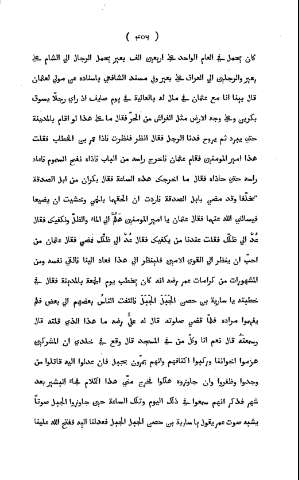 ( ٤٠٦ )
كان يحمل في العام الواحد على اربعين الف بعير يحمل الرجال الى الشام على
بعير والرجلين الى العراق على بعير وفي مسند الشافعي باسناده عن مولى لعثمان
قال بينا انا مع عثمان في مال له بالعالية في يوم صايف اذ راى رجلا يسوق
بكرين وعلى وجه الارض مثل الفراش من الحر فقال ما على هذا لو اقام بالمدينة
حتى يبرد ثم يروح فدنا الرجل فقال انظر فنظرت فاذا عمر بن الخطاب فقلت
هذا امير المومنين فقام عثمان فاخرج راسه من الباب فاذاه نفح السموم فاعاد
راسه حتى حاذاه فقال ما اخرجك هذه الساعة فقال بكران من ابل الصدقة
تخلفا وقد مضى بابل الصدقة فاردت ان الحقهما بالحمى وخشيت ان يضيعا
فيسالني الله عنهما فقال عثمان يا امير المومنين هلم الى الماء والظل ونكفيك فقال
عد الى ظلك فقلت عندنا من يكفيك فقال عد الى ظلك فمضى فقال عثمان من
احب ان ينظر الى القوي الامين فلينظر الى هذا فعاد الينا فالقى نفسه ومن
المشهورات من كرامات عمر رضه انه كان يخطب يوم الجمعة بالمدينة فقال في
خطبته يا سارية بن حصن الجبل الجبل فالتفت الناس بعضهم الى بعض فلم
يفهموا مراده فلما قضى صلوته قال له علي رضه ما هذا الذي قلته قال
وسمعته قال نعم انا وكل من في المسجد قال وقع في خلدي ان المشركين
هزموا اخواننا وركبوا اكتافهم وانهم يمرون بجبل فان عدلوا اليه قاتلوا من
وجدوا وظفروا وان جاوزوه هلكوا فخرج مني هذا الكلام فجاء البشير بعد
شهر فذكر انهم سمعوا في ذلك اليوم وتلك الساعة حين جاوزوا الجبل صوتا
يشبه صوت عمر يقول يا سارية بن حصن الجبل الجبل فعدلنا اليه ففتح الله علينا